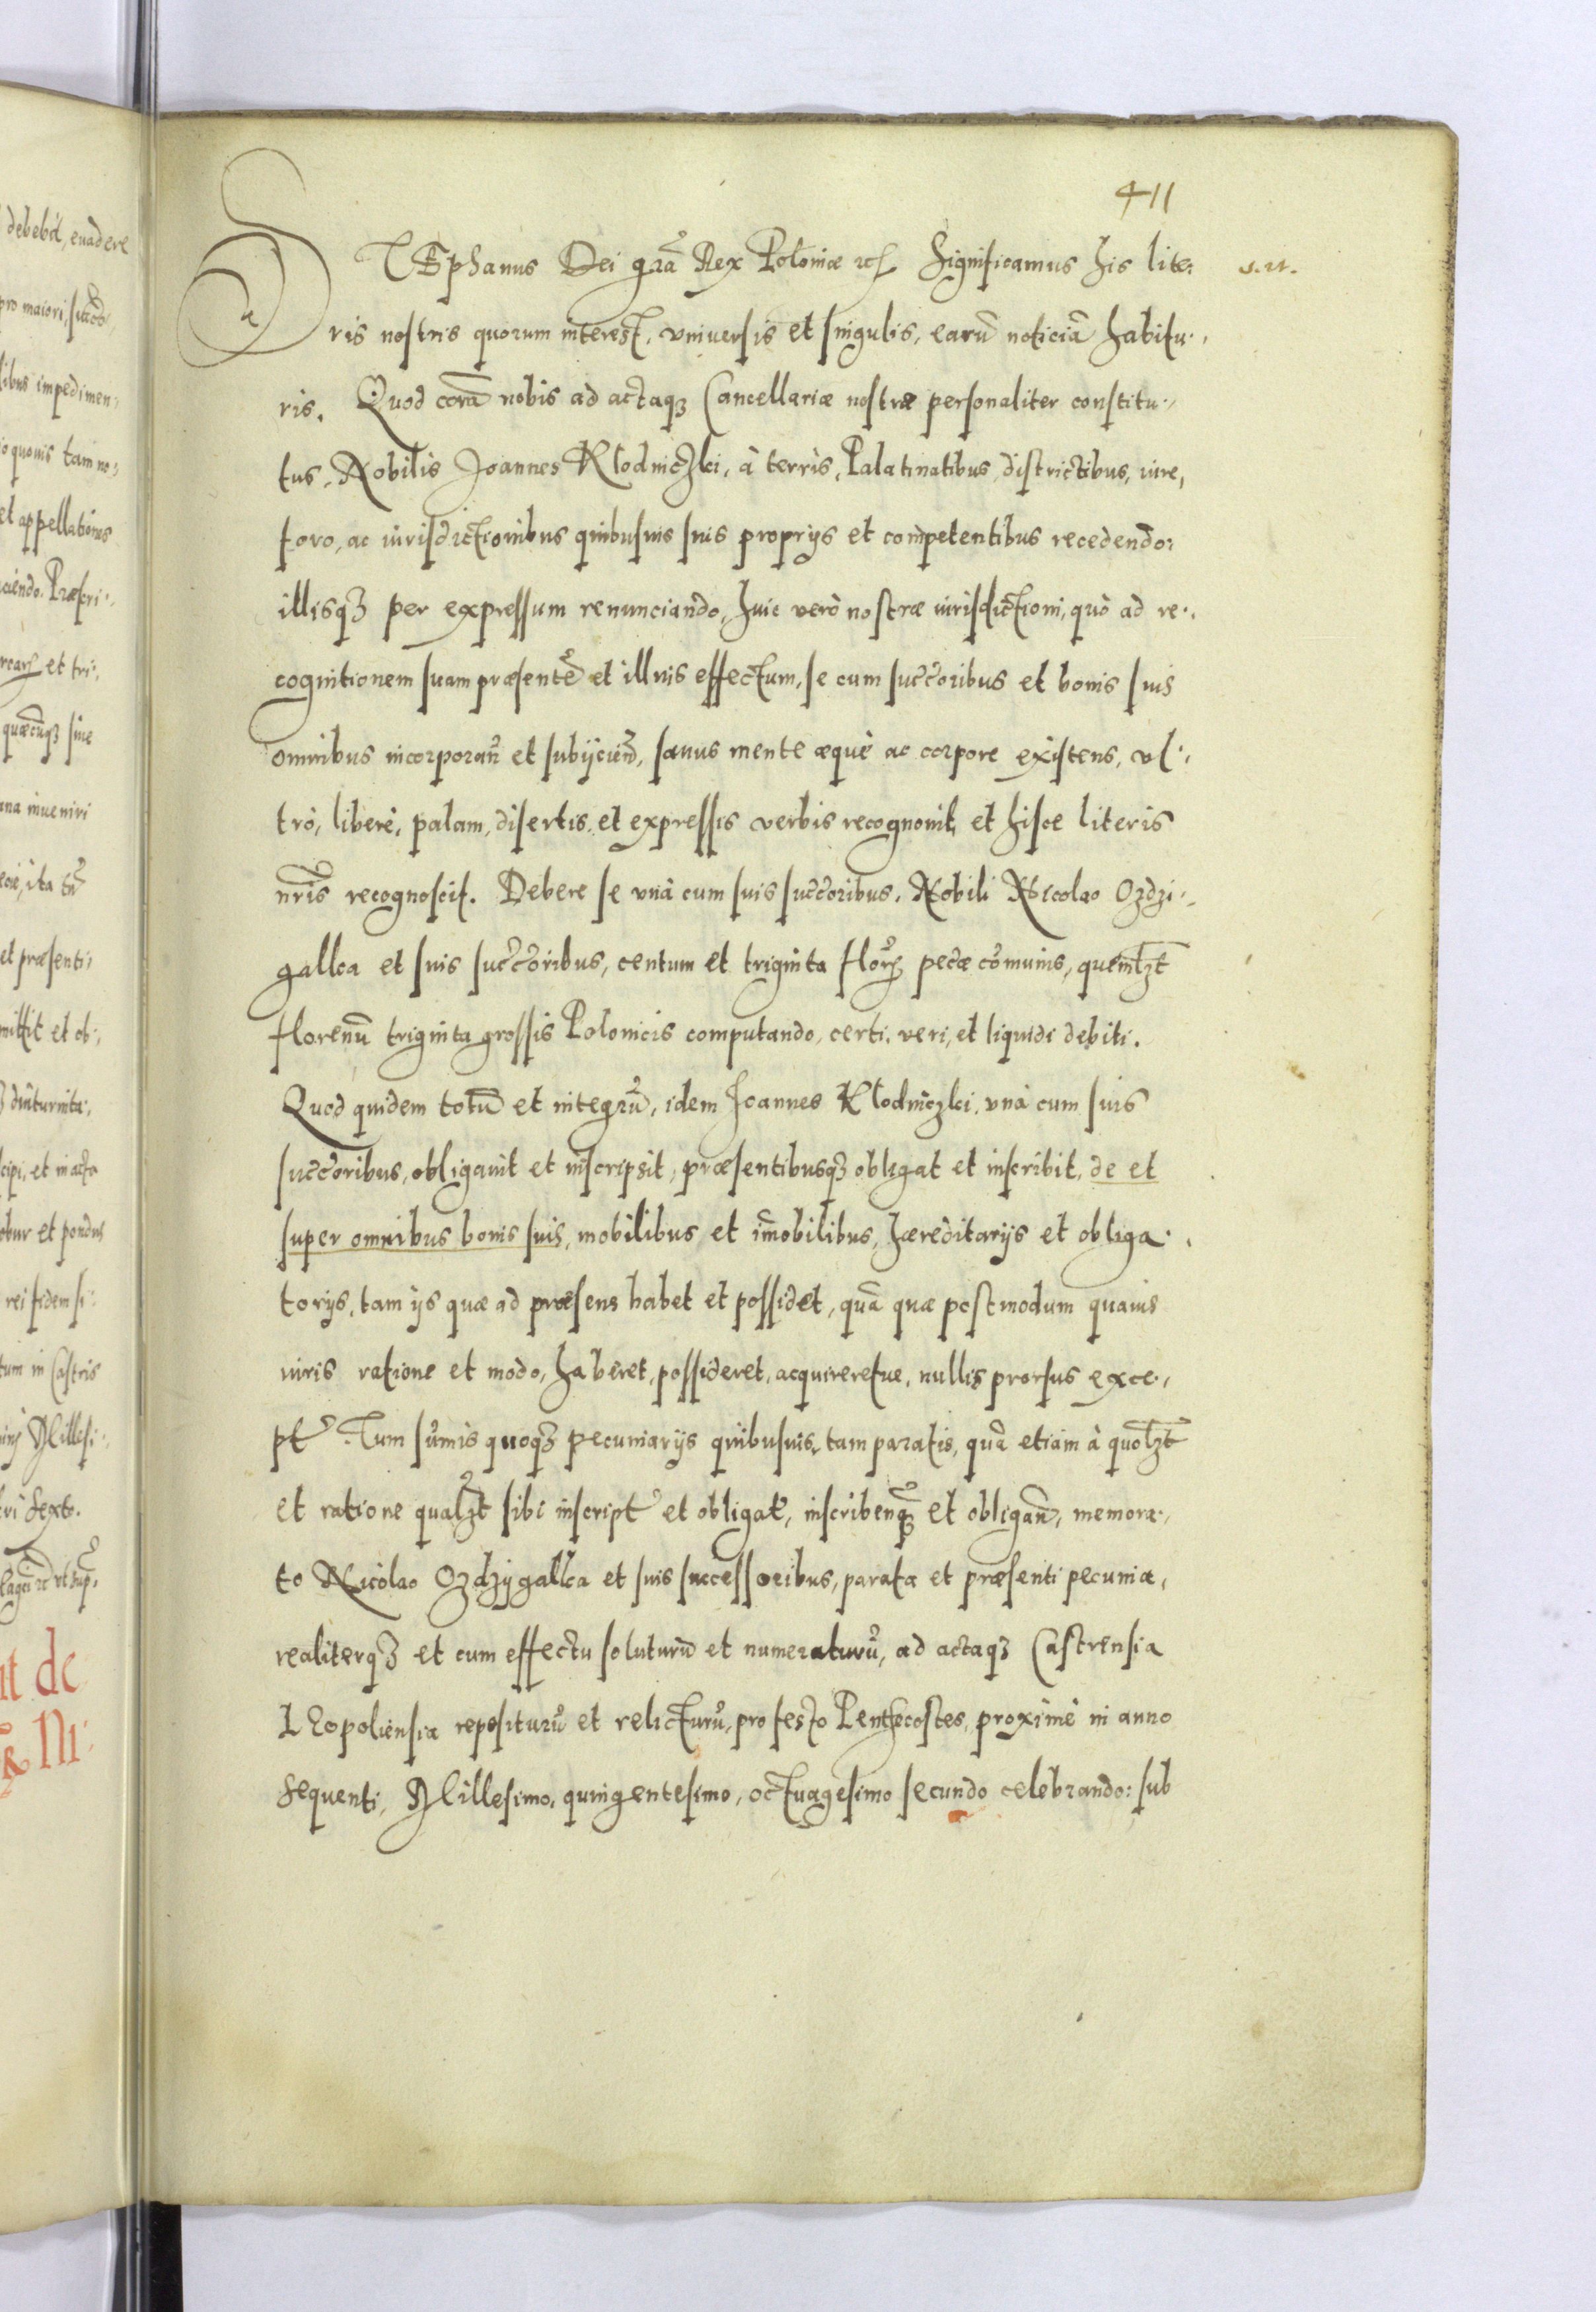 411
STEphanus Dei grã Rex Poloniæ etc Significamus his lite:
ris nostris quorum interest, vniuersis et singulis, earũ noticiã habitu:
ris. Quod corã nobis ad actaqȝ Cancellariæ nostræ personaliter constitu:
tus, Nobilis Joannes Klodniczki, à terris, Palatinatibus, districtibus, iure,
foro, ac iurisdictionibus quibusuis suis proprijs et competentibus recedendo:
illisqȝ per expressum renunciando, huic verò nostræ iurisdictioni, quò ad re:
cognitionem suam præsentẽ et illius effectum, se cum succoribus et bonis suis
omnibus incorporañ et subijcieñ, sanus mente æquè ac corpore existens, vl:
trò, liberè, palam, disertis et expressis verbis recognouit, et hisce literis
nr̃is recognoscit. Debere se vnà cum suis succoribus, Nobili Nicolao Ozdzi:
gallca et suis succoribus, centum et triginta flor pecæ cõmunis, quemlȝt
florenũ triginta grossis Polonicis computando, certi, veri, et liquidi debiti.
Quod quidem totũ et integrũ, idem Joannes Klodniczki, vnà cum suis
succoribus, obligauit et inscripsit, præsentibusqȝ obligat et inscribit, de et
super omnibus bonis suis, mobilibus et im̃obilibus, hæreditarijs et obliga:
torijs, tam ijs quæ ad præsens habet et possidet, quã quæ postmodum quauis
iuris ratione et modo, haberet, possideret, acquireretue, nullis prorsus exce:
pt Tum sum̃is quoqȝ pecuniarijs quibusuis, tam paratis, quã etiam à quolȝt
et ratione qualȝt sibi inscript et obligat, inscribenqȝ et obligañ, memora:
to Nicolao Ozdzygallca et suis successoribus, parata et præsenti pecunia,
realiterqȝ et cum effectu soluturũ et numeraturũ, ad actaqȝ Castrensia
Leopoliensia repositurũ et relicturũ, pro festo Penthecostes, proximè in anno
sequenti, Millesimo, quingentesimo, octuagesimo secundo celebrando: sub